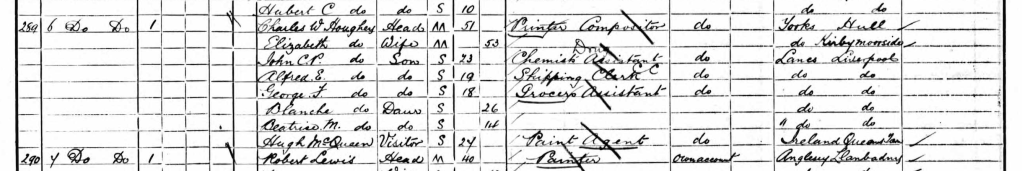 Hubert C. do do S 10 do do
289 6 Do Do 1 Charles W. Houghery Head M 51 Printer Compositor do Yorks Hull
Elizabeth do Wife M 53 do Kirbymoorside
John C.P. do Son S 23 Drug Chemist Assistant do Lancs Liverpool
Alfred. E. do do S 19 Shipping Clerk C do do do
George F. do do S 18 Grocers Assistant do do do
Blanche do Daur S 26 do do
Beatrice M. do do S 14 " do do
Hugh McQueen Visitor S 24 Paint Agent do Ireland Queens Tan
290 7 Do Do 1 Robert Lewis Head M 40 Painter Own account Anglesey